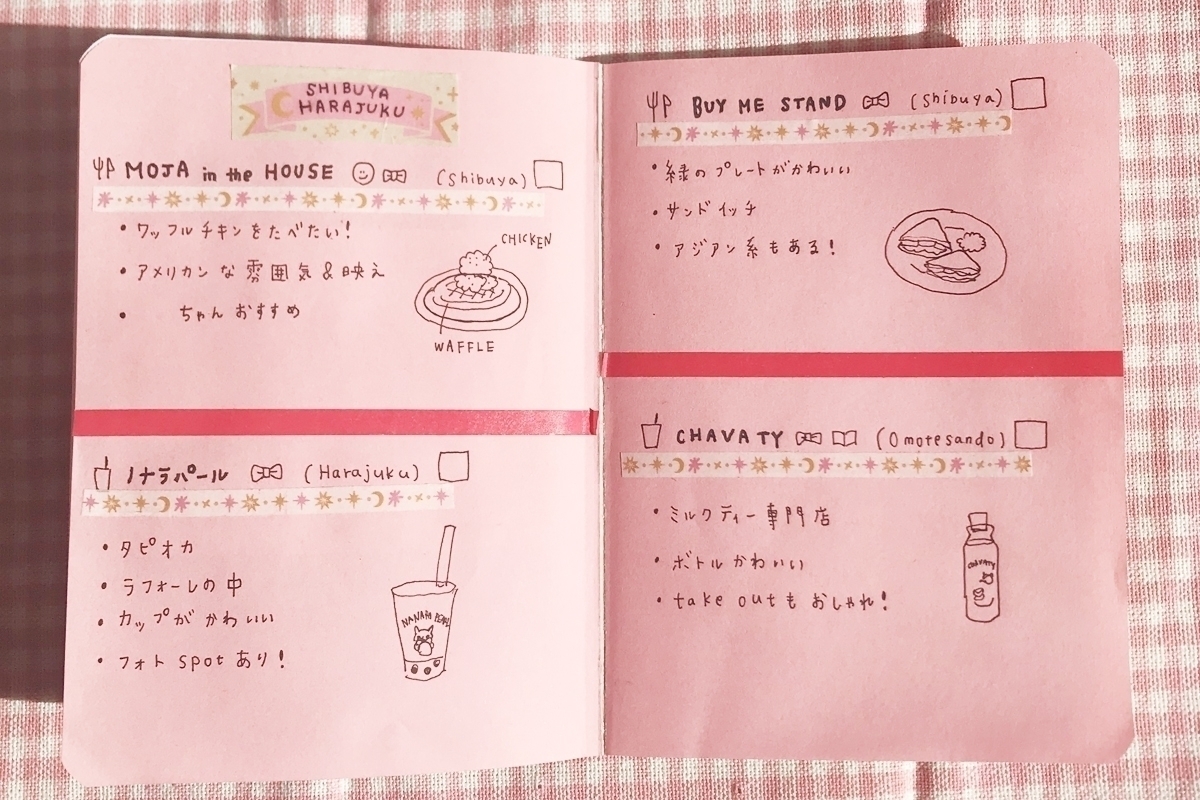 SHIBUYA
HARAJUKU
MOJA in the HOUSE (Shibuya)
・ワッフルチキンをたべたい!
・アメリカンな雰囲気&映え
・ちゃんおすすめ
CHICKEN
WAFFLE
ノナラパール (Harajuku)
・タピオカ
・ラフォーレの中
・カップがかわいい
・フォトspotあり!
BUY ME STAND (Shibuya)
・緑のプレートがかわいい
・サンドイッチ
・アジアン系もある!
CHAVATY (Omotesando)
・ミルクティー専門店
・ボトルかわいい
・take outもおしゃれ!
CHAVATY